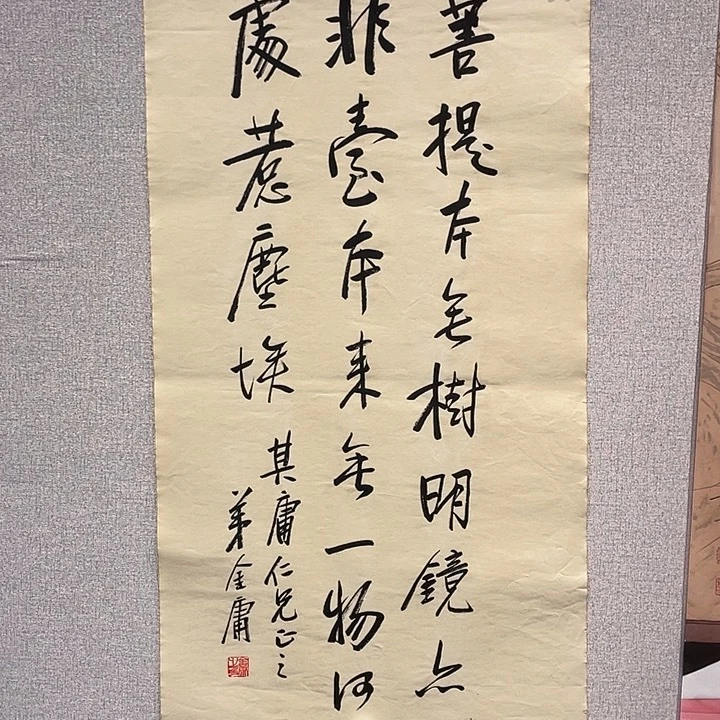 菩提本無樹明鏡亦
非臺本来無一物何
處惹塵埃
其庸仁兄正之
弟金庸